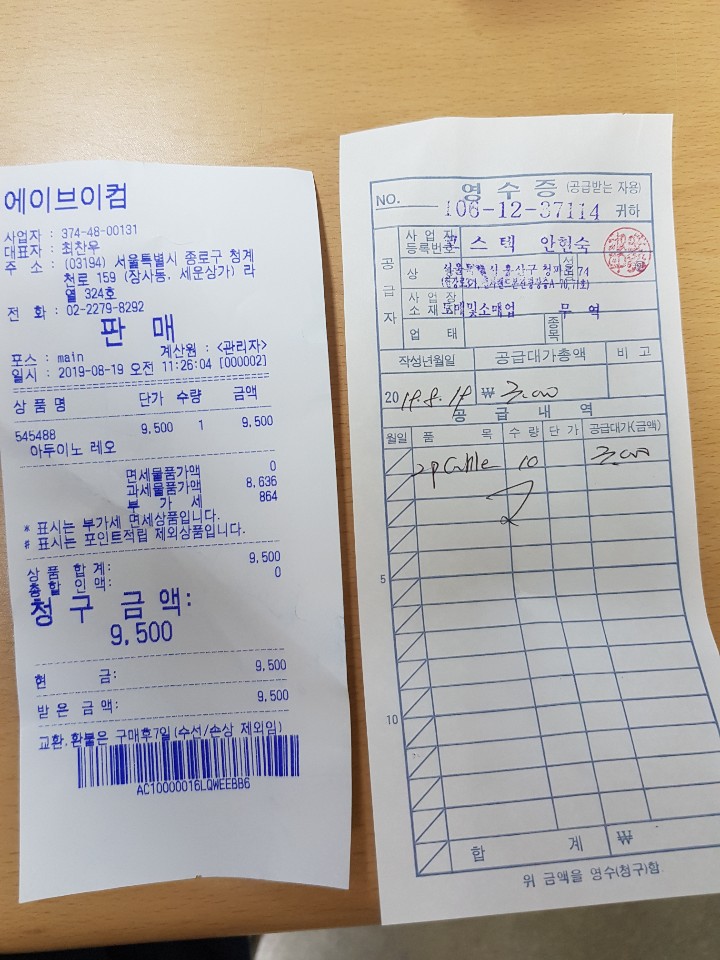 에이브이컴
사업자 : 374-48-00131
대표자 : 최찬우
주 소 : (03194) 서울특별시 종로구 청계
천로 159 (장사동, 세운상가) 라
열 324호
전 화 : 02-2279-8292
판 매
포스 : main 계산원 : <관리자>
일시 : 2019-08-19 오전 11:26:04 [000002]
상 품 명 단가 수량 금액
545488 9,500 1 9,500
아두이노 레오
면세물품가액 0
과세물품가액 8,636
부 가 세 864
* 표시는 부가세 면세상품입니다.
# 표시는 포인트적립 제외상품입니다.
상 품 합 계: 9,500
총 할 인 액: 0
청 구 금 액:
9,500
현 금: 9,500
받 은 금 액: 9,500
교환,환불은 구매후7일(수선/손상 제외임)
AC10000016LQWEEBB6
NO. 영 수 증 (공급받는 자용)
106-12-37114 귀하
공 급 자
사 업 자
등록번호
스 텍 안현숙
상 성
서울특별시 용산구 청파로 74
사 업 장
소 재
도매및소매업 무 역
업 태 종목
작성년월일 공급대가총액 비 고
2019.8.19 ₩ 3,000
공 급 내 역
월일 품 목 수 량 단 가 공급대가(금액)
2p Cable 10 3,000
5
10
합 계 ₩
위 금액을 영수(청구)함